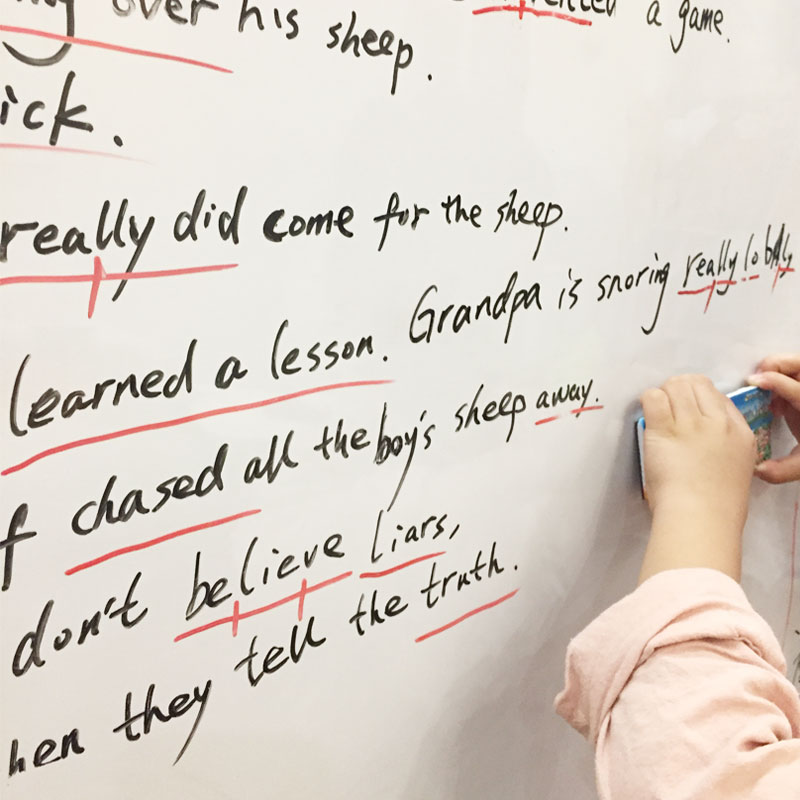 over his sheep.
a game.
ick.
really did come for the sheep.
learned a lesson. Grandpa is snoring really
f chased all the boy's sheep away.
don't believe liars,
hen they tell the truth.